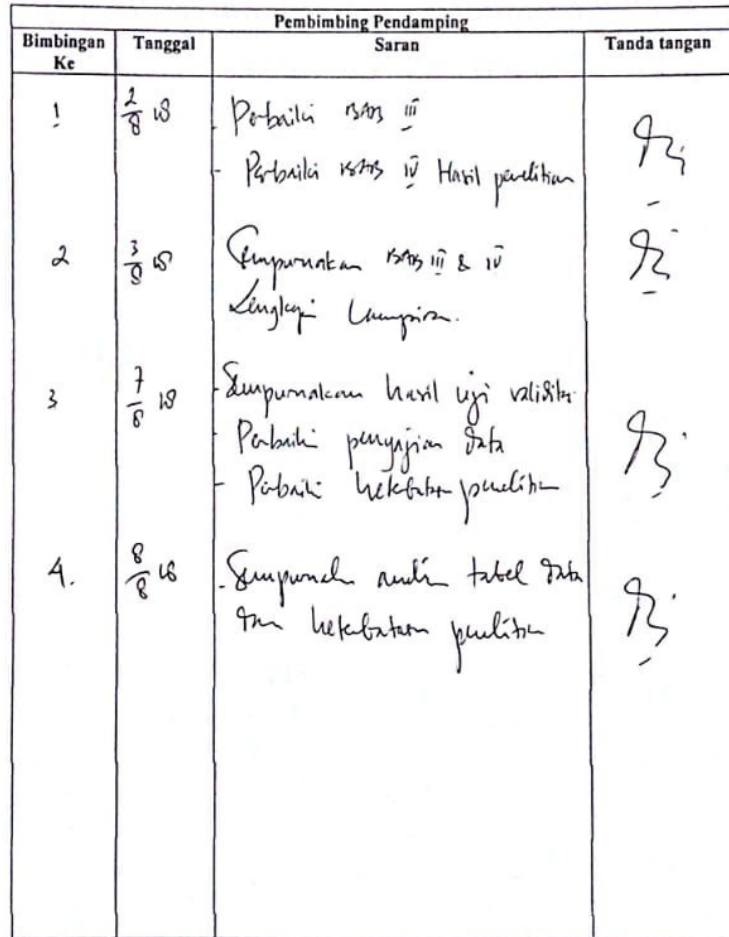 Pembimbing Pendamping
Bimbingan Ke Tanggal Saran Tanda tangan
1 2/8 18 - Perbaiki BAB III
- Perbaiki BAB IV Hasil penelitian
2 3/8 18 Sempurnakan BAB III & IV
Lengkapi Lampiran.
3 7/8 18 - Sempurnakan hasil uji validitas
Perbaiki penyajian data
- Perbaiki keterbatasan penelitian
4. 8/8 18 - Sempurnakan tabel data
dan keterbatasan penelitian